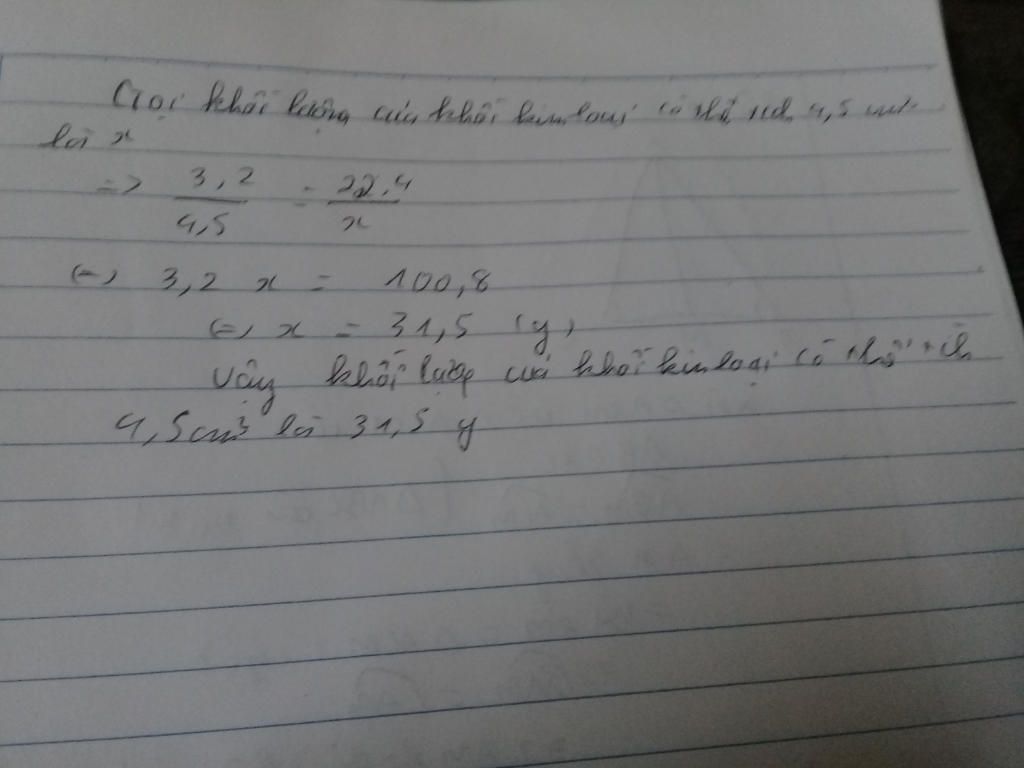 Gọi khối lượng của khối kim loại có thể tích 4,5 cm³
là x
=> 3,2/4,5 = 22,4/x
<=> 3,2 x = 100,8
<=> x = 31,5 (g)
Vậy khối lượng của khối kim loại có thể tích
4,5 cm³ là 31,5 g